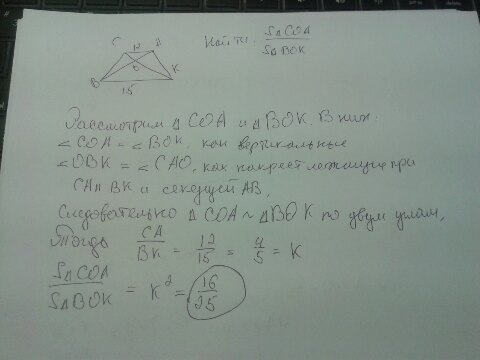 Найти: S△COA / S△BOK
C 12 A
O
B K
15
Рассмотрим △COA и △BOK. В них:
∠COA = ∠BOK, как вертикальные
∠OBK = ∠CAO, как накрест лежащие при
CA∥BK и секущей AB.
Следовательно △COA ~ △BOK по двум углам.
Тогда CA/BK = 12/15 = 4/5 = K
S△COA / S△BOK = K² = 16/25